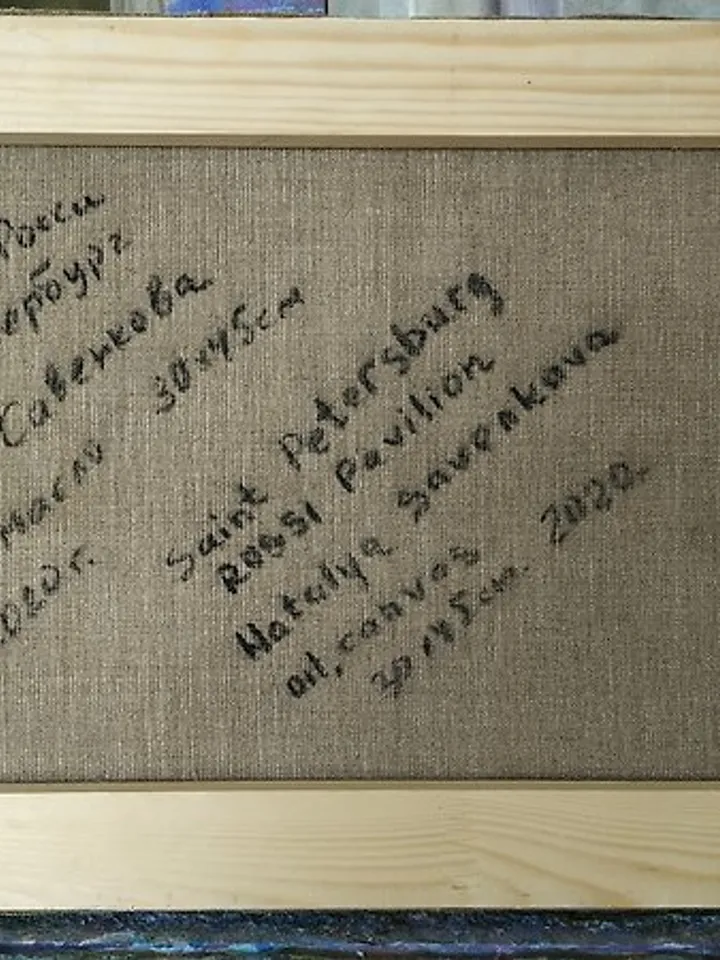 Росси
Савенкова
масло 30x45см
2020г.
Saint Petersburg
ROSSI Pavilion
Natalya Savenkova
oil, canvas 2020.
30x45cm.